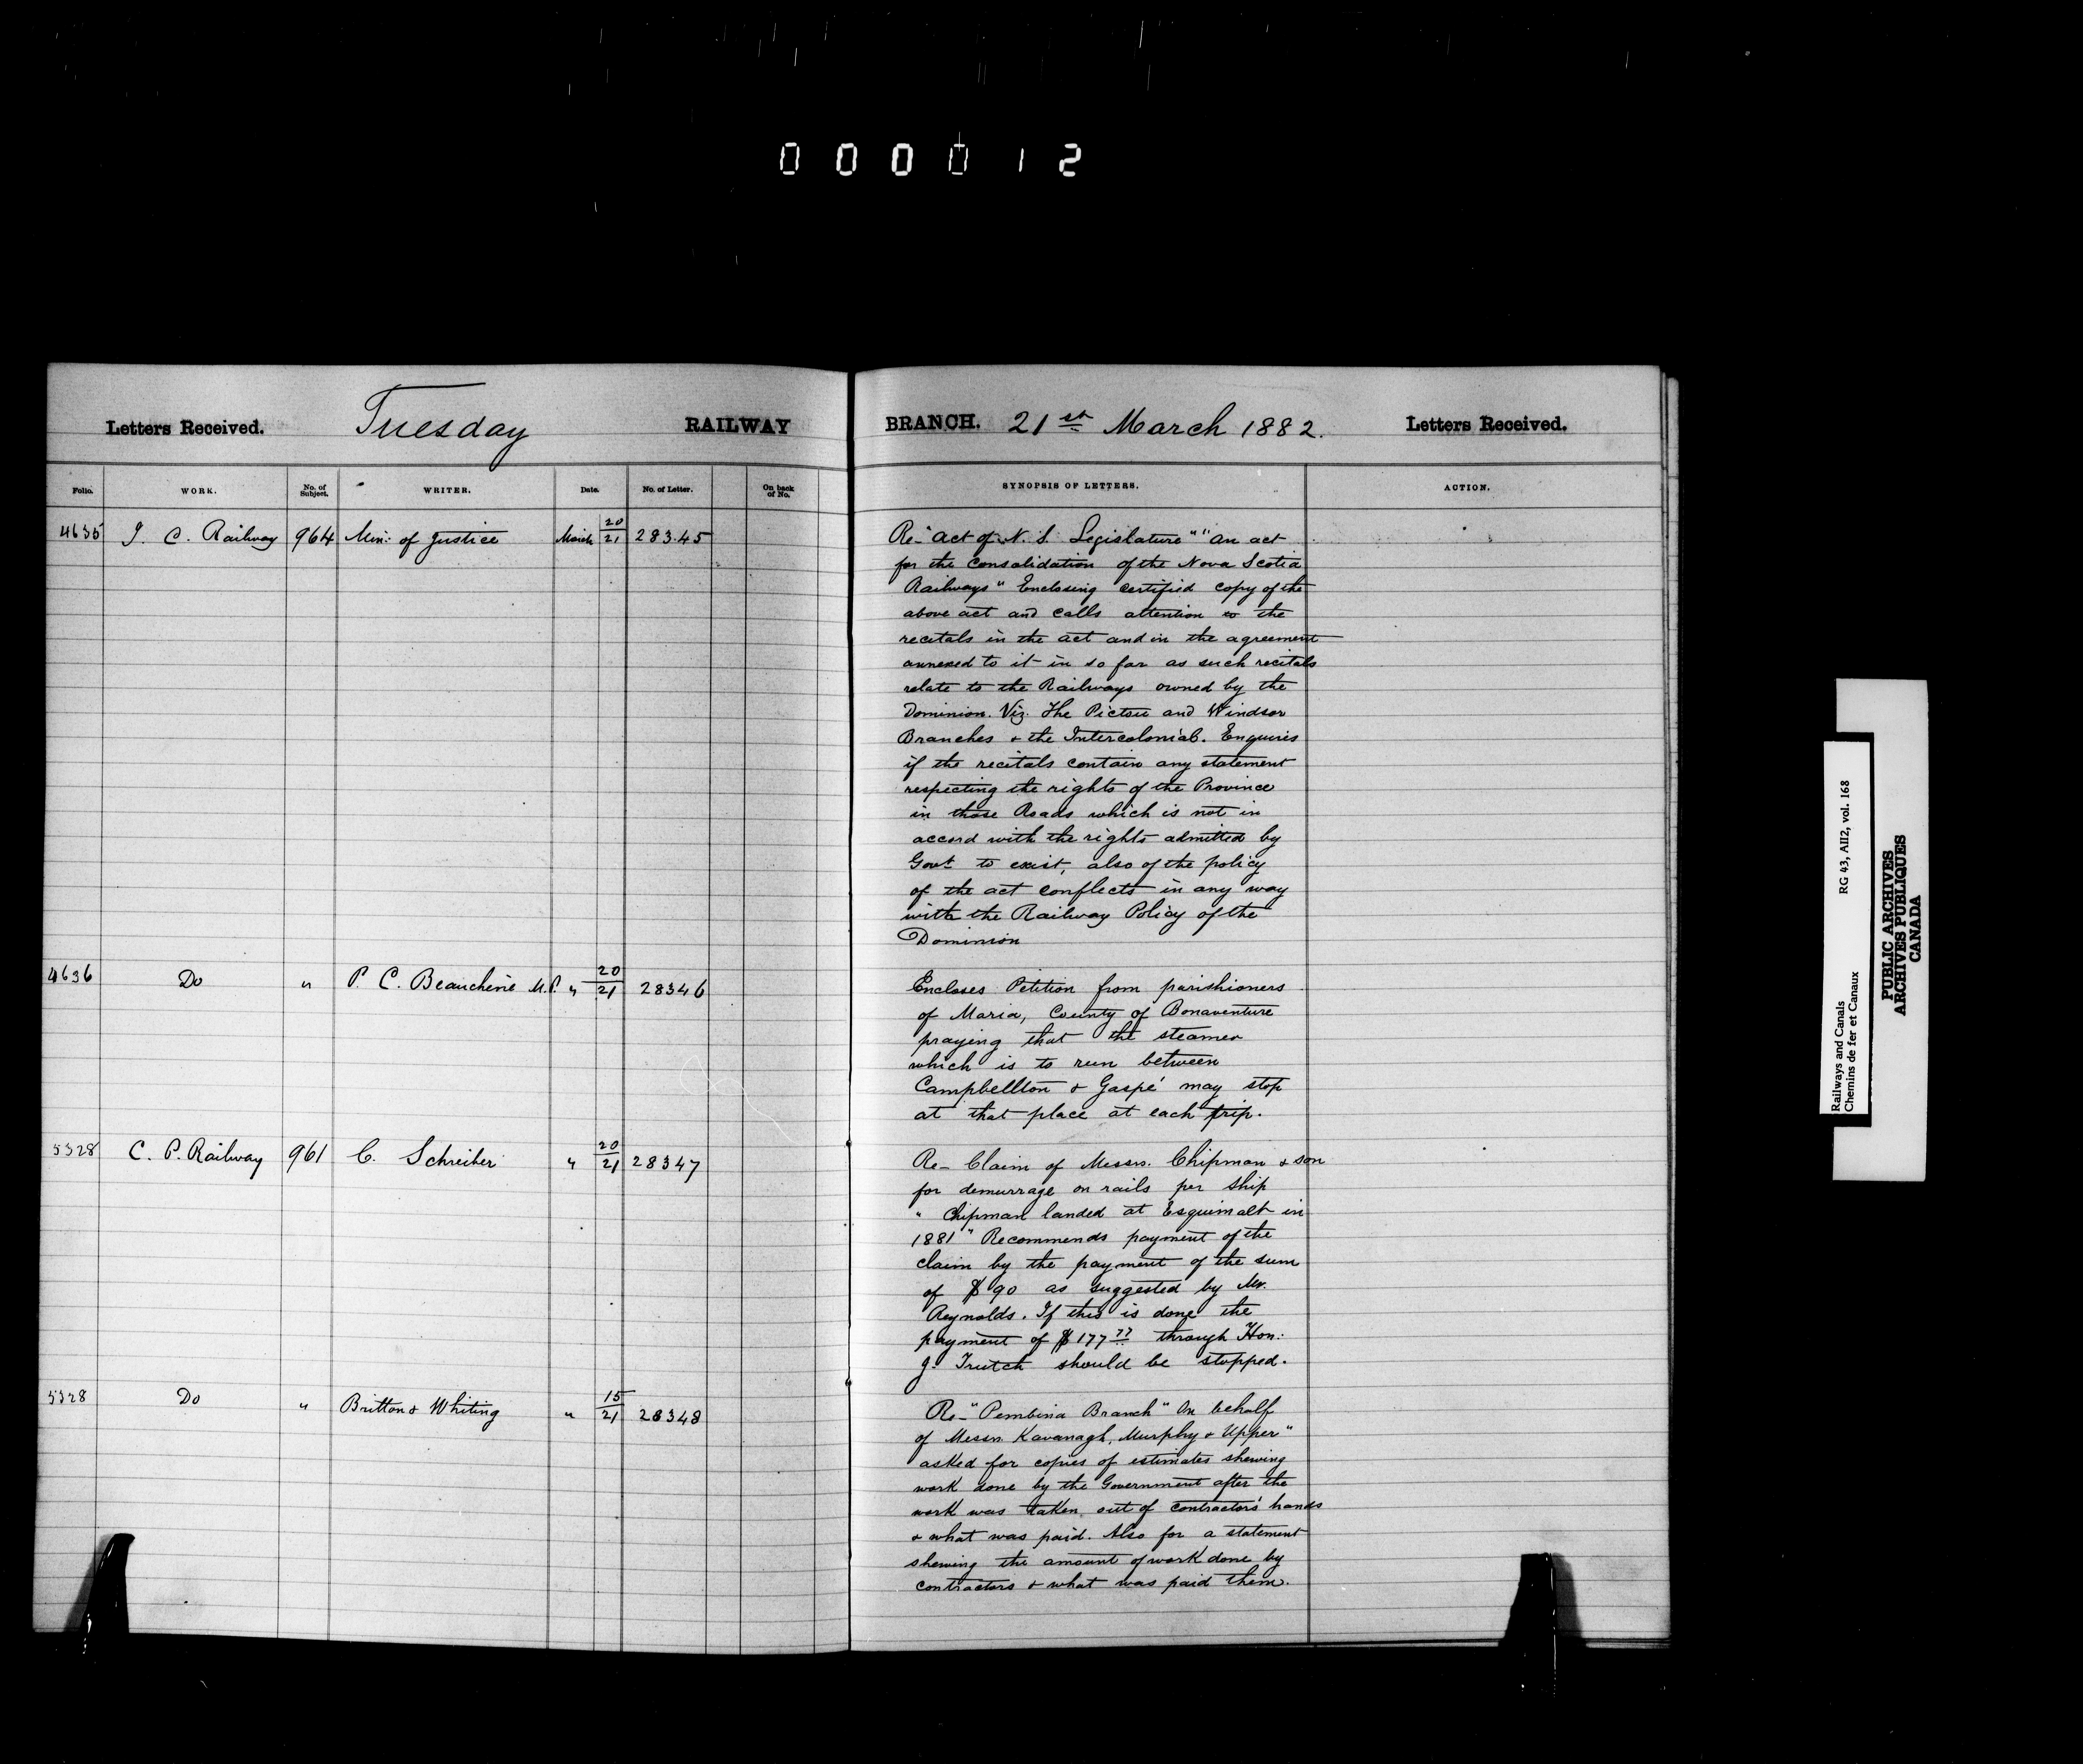 000012
Letters Received. Tuesday RAILWAY BRANCH. 21st March 1882. Letters Received.
Folio. WORK. No. of Subject. WRITER. Date. No. of Letter. On back of No. SYNOPSIS OF LETTERS. ACTION.
4635 I. C. Railway 964 Min: of Justice March 20/21 28345 Re- "Act of N. S. Legislature" "An act
for the Consolidation of the Nova Scotia
Railways" Enclosing certified copy of the
above act and calls attention to the
recitals in the act and in the agreement
annexed to it in so far as such recitals
relate to the Railways owned by the
Dominion. Viz. The Pictou and Windsor
Branches & the Intercolonial. Enquires
if the recitals contain any statement
respecting the rights of the Province
in those Roads which is not in
accord with the rights admitted by
Govt to exist, also of the policy
of the act conflects in any way
with the Railway Policy of the
Dominion
4636 Do " P. C. Beauchene M.P. " 20/21 28346 Encloses Petition from parishioners
of Maria, County of Bonaventure
praying that the steamer
which is to run between
Campbellton & Gaspé may stop
at that place at each trip.
5328 C. P. Railway 961 C. Schreiber " 20/21 28347 Re- Claim of Messrs. Chipman & son
for demurrage on rails per ship
" Chipman landed at Esquimalt in
1881" Recommends payment of the
claim by the payment of the sum
of $90 as suggested by Mr.
Reynolds. If this is done the
payment of $177 77 through Hon:
J. Trutch should be stopped.
5328 Do " Britton & Whiting " 15/21 28348 Re- "Pembina Branch" On behalf
of Messrs. Kavanagh, Murphy & Upper"
asked for copies of estimates shewing
work done by the Government after the
work was taken out of contractors' hands
& what was paid. Also for a statement
shewing the amount of work done by
contractors & what was paid them.
Railways and Canals
Chemins de fer et Canaux
RG 43, AII2, vol. 168
PUBLIC ARCHIVES
ARCHIVES PUBLIQUES
CANADA